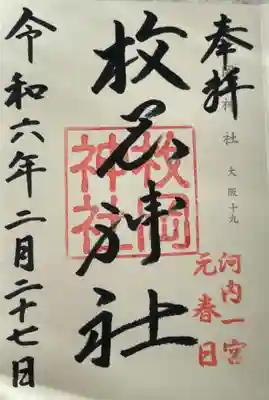 奉拝
神社 大阪十九
河内一宮
元春日
枚岡神社
枚岡神社
令和六年二月二十七日